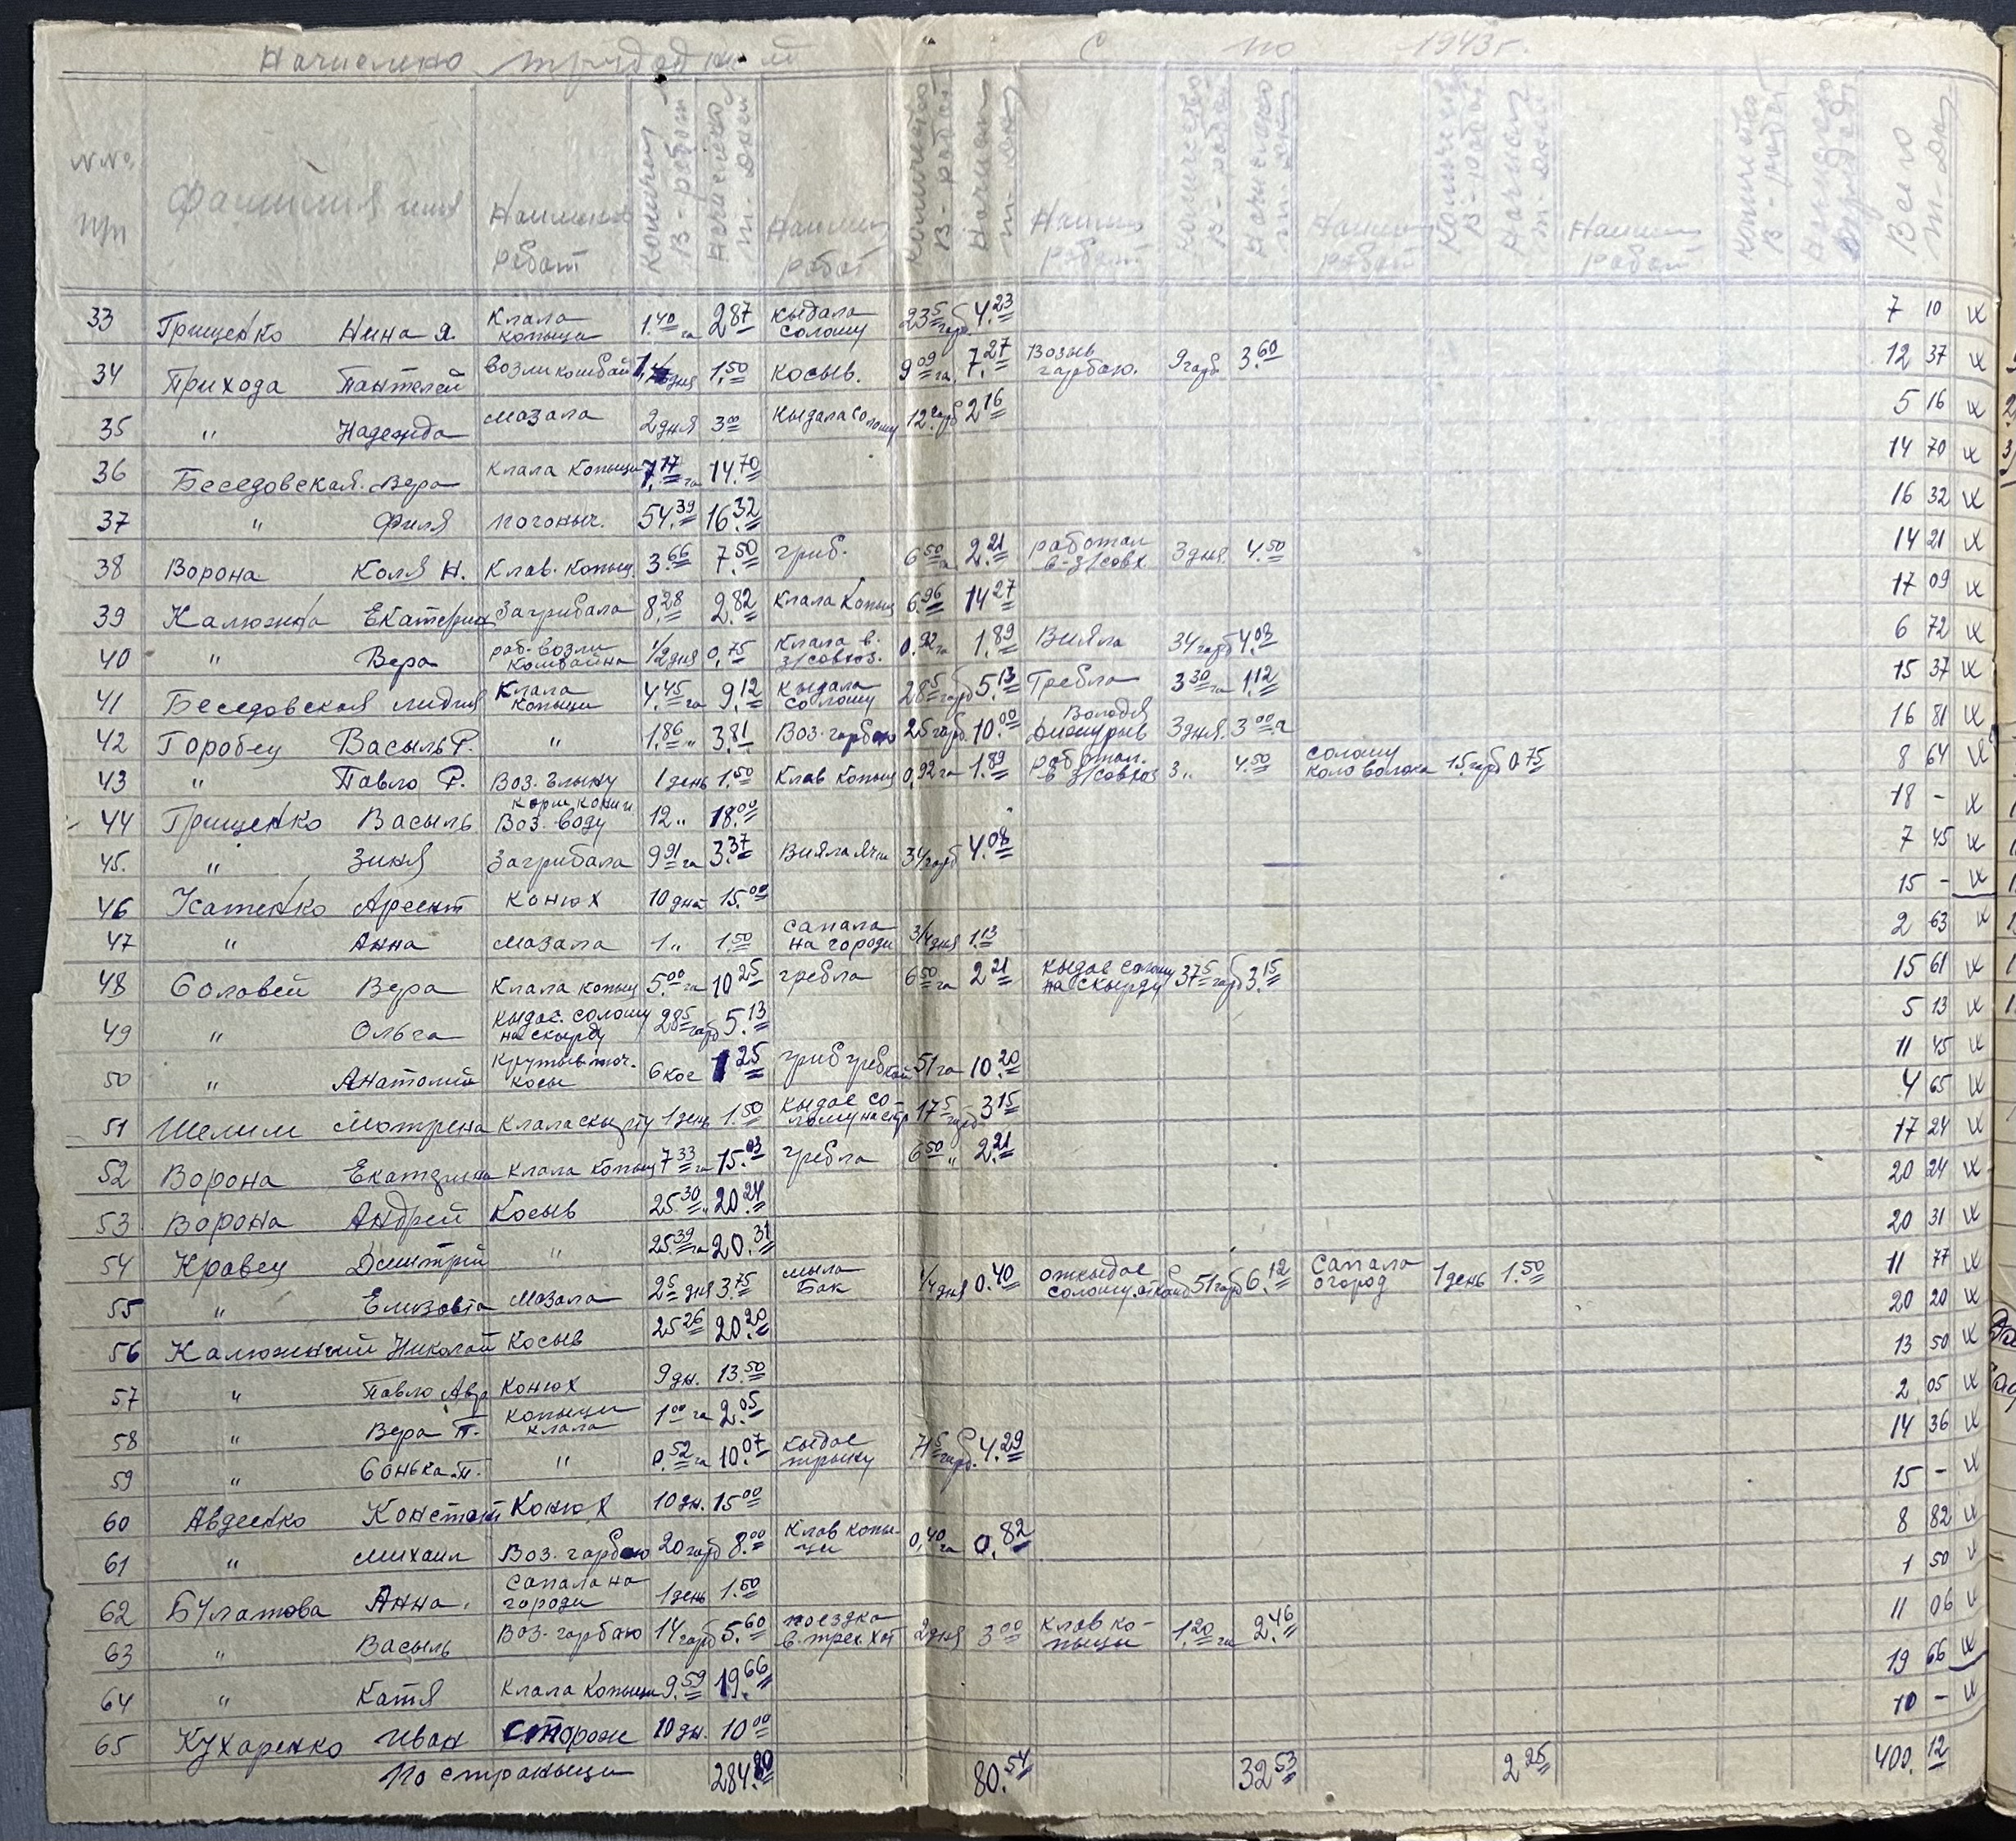 Начислено трудодней С по 1943 г.
№№ п/п Фамилия имя Наимен работ Количест В-работ Начислено т-дней Наимен работ Количество В-работ Начислен т-дн Наимен работ Количество В-работ Начислено т-дн Наимен работ Количеств В-работ Начисл т-дней Наимен работ Количество В-работ Начислено Всего т-дн
33 Грищенко Нина Я. Клала копыци 1.40 га 2.87 Кыдала солому 23.5 гарб. 4.23 7 10
34 Прихода Пантелей возли комбай 1.50 Косыв. 9.09 га 7.27 Возыв гарбою. 9 гарб 3.60 12 37
35 " Надежда мазала 2 дня 3.00 Кыдала солому 12 гарб 2.16 5 16
36 Беседовская Вера Клала Копыци 7.17 га 14.70 14 70
37 " Филя погоныч. 54.39 16.32 16 32
38 Ворона Коля Н. Клав. Копыц. 3.66 7.50 гриб. 6.50 га 2.21 работал в-з/совх. 3 дня 4.50 14 21
39 Калюжна Екатерин Загрибала 8.28 2.82 Клала Копыц 6.96 14.27 17 09
40 " Вера раб. возли комбайна 1/2 дня 0.75 Клала в. з/совхоз. 0.92 га 1.89 Вияла 34 гарб 4.08 6 72
41 Беседовская Лидия Клала Копыци 4.45 га 9.12 Кыдала солому 28.5 гарб 5.13 Гребла 3.30 га 1.12 15 37
42 Горобец Васыль Р. " 1.86 " 3.81 Воз. гарбою 25 гарб. 10.00 Володя 3 дня. 3.00 16 81
43 " Павло Р. Воз. глыну 1 день 1.50 Клав Копыц 0.92 га 1.89 работал. в з/совхоз 3 " 4.50 солому коло волока 15 гарб 0.75 8 64
44 Грищенко Васыль корм. кони и Воз. воду 12 " 18.00 18 -
45. " Зиня Загрибала 9.91 га 3.37 Вияла ячм 34 гарб 4.08 7 45
46 Усатенко Арсент Конюх 10 дня 15.00 15 -
47 " Анна мазала 1 " 1.50 сапала на городи 3/4 дня 1.13 2 63
48 Соловей Вера Клала копыц 5.00 га 10.25 гребла 6.50 га 2.21 Кыдае солому на скырду 37.5 гарб 3.15 15 61
49 " Ольга Кыдае. солому на скырду 28.5 гарб 5.13 5 13
50 " Анатолий Крутыв точ. косы 6 кос 1.25 гриб гребкой 51 га 10.20 11 45
51 Шелим Мотрена Клала скырту 1 день 1.50 Кыдае солому на стр 17.5 гарб 3.15 4 65
52 Ворона Екатерина Клала Копыц 7.33 га 15.03 гребла 6.50 " 2.21 17 24
53 Ворона Андрей Косыв 25.30 " 20.24 20 24
54 Кравец Дмитрий " 25.39 га 20.31 20 31
55 " Елизовта Мазала 2.5 дня 3.75 мыла Бак 1/4 дня 0.40 откыдае солому 51 гарб 6.12 Сапала огород 1 день 1.50 11 77
56 Калюжный Николай Косыв 25.26 20.20 20 20
57 " Павло Авр Конюх 9 дн. 13.50 13 50
58 " Вера П. Копыци клала 1.00 га 2.05 2 05
59 " Сонька П. " 0.52 га 10.07 Кыдае гарб. 4.29 14 36
60 Авдеенко Констант Конюх 10 дн. 15.00 15 -
61 " Михаил Воз. гарбою 20 гарб 8.00 Клав копыци 0.40 га 0.82 8 82
62 Булатова Анна. Сапала на городи 1 день 1.50 1 50
63 " Васыль Воз. гарбою 14 гарб 5.60 поездка в. трех.хат 2 дня 3.00 Клав копыцы 1.20 га 2.46 11 06
64 " Катя Клала Копыци 9.59 19.66 19 66
65 Кухаренко Иван Сторож 10 дн. 10.00 10 -
По страныци 284.80 80.54 32.53 2.25 400.12